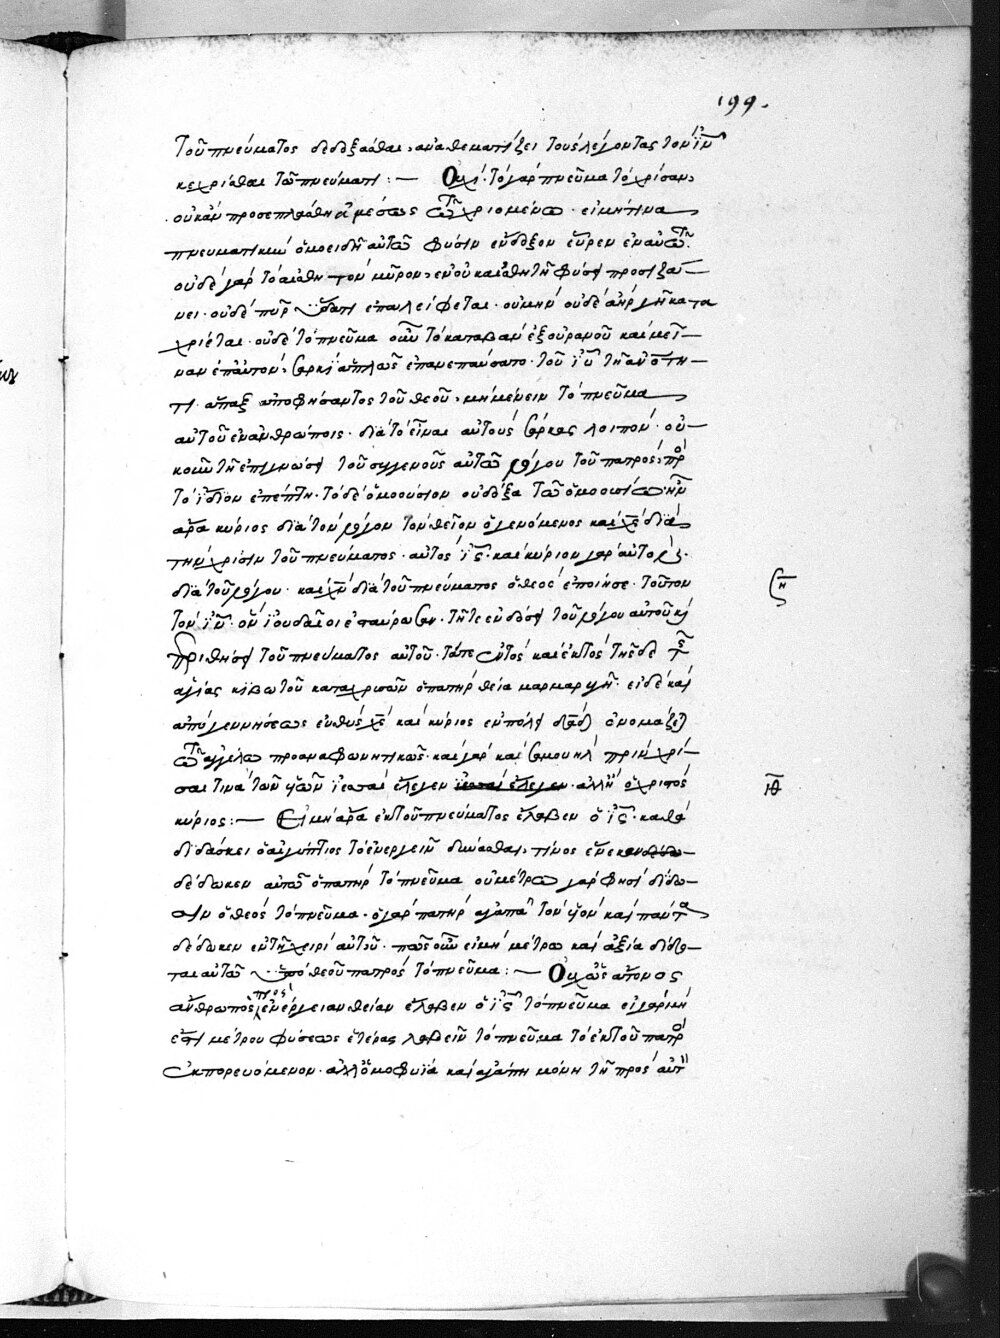 199.
τοῦ πνεύματος δεδέξασθαι, ἀναθεματίζει τοὺς λέγοντας τὸν ἰῦν
κεχρίσθαι τῶ πνεύματι :— Οὐχί· τὸ γὰρ πνεῦμα τὸ χρίσαν,
οὐκ ἂν προσεπλάσθη ἀμέσως τῶ χριομένω· εἰ μήτινα
πνευματικὴν ὁμοειδῆ αὐτῶ φύσιν ἔνδοξον εὗρεν ἐν αὐτῶ.
οὐδὲ γὰρ τὸ αἰσθητὸν μῦρον, ἐν οὐκ αἰσθητῆ φύσει προσιζά-
νει· οὐδὲ πῦρ ὕδατι ἐπαλείφεται· οὐμὴν οὐδὲ ἀὴρ γῆ κατα
χρίεται· οὐδὲ τὸ πνεῦμα οὖν τὸ καταβὰν ἐξ οὐρανοῦ καὶ μεῖ-
ναν ἐπ' αὐτὸν, σαρκὶ ἁπλῶς ἐπανεπαύσατο· τοῦ ἰῦ
τι ἅπαξ ἀποφήσαντος τοῦ θεοῦ, μὴ μένειν τὸ πνεῦμα
αὐτοῦ ἐν ἀνθρώποις· διὰ τὸ εἶναι αὐτοὺς σάρκας λοιπόν· οὐ-
κοῦν τῆ ἐπιγνώσει τοῦ συγγενοῦς αὐτῶ λόγου τοῦ πατρὸς, πρὸ
τὸ ἴδιον ἐπέπτη· τὸ δὲ ὁμοούσιον οὐδέξα τῶ ὁμοουσίω ἦν
ἄρα κύριος διὰ τὸν λόγον τὸν θεῖον ὁ γενόμενος καὶ χς διὰ
τὴν χρίσιν τοῦ πνεύματος· αὐτὸς ἰς· καὶ κύριον γὰρ αὐτὸ
διὰ τοῦ λόγου· καὶ χν διὰ τοῦ πνεύματος ὁ θεὸς ἐποίησε· τοῦτον
τὸν ἰν· ὃν ἰουδαῖοι ἐσταύρωσαν· τῆ τε ἐνδόσει τοῦ λόγου αὐτοῦ κ
τῆ χρίσει τοῦ πνεύματος αὐτοῦ· τότε ἐντὸς καὶ ἐκτὸς τῆσδε τς
ἁγίας κιβωτοῦ καταχρισῶν ὁ πατὴρ θεία μαρμαρυγῆ· εἰ δὲ καὶ
ἀπὸ γεννήσεως εὐθὺς χς καὶ κύριος ἐν πόλει δαδ ὀνομάζει
τῶ ἀγγέλω προαναφωνητικῶς· καὶ γὰρ καὶ σαμουὴλ πρὶν χρί-
σαι τινὰ τῶν υἱῶν ἰεσσαὶ ἔλεγεν ἰεσσαὶ ἔλεγεν· ἀλλ' ἢ ὁ χριστὸς
κύριος :— Εἰ μὴ ἄρα ἐκ τοῦ πνεύματος ἔλαβεν ὁ ἰς· καθὰ
διδάσκει ὁ αἰγύπτιος τὸ ἐνεργεῖν δύνασθαι, τίνος ἕνεκεν
δέδωκεν αὐτῶ ὁ πατὴρ τὸ πνεῦμα οὐ μέτρω γὰρ φησὶ δίδω-
σιν ὁ θεὸς τὸ πνεῦμα· ὁ γὰρ πατὴρ ἀγαπᾶ τὸν υἱὸν καὶ πάντα
δέδωκεν ἐν τῆ χειρὶ αὐτοῦ· πῶς οὖν εἰ μὴ μέτρω καὶ ἀξία δίδο-
ται αὐτῶ ὑπὸ θεοῦ πατρὸς τὸ πνεῦμα :— Οὐχ ὡς ἄπονος
ἄνθρωπος πρὸς ἐνέργειαν θείαν ἔλαβεν ὁ ἰς τὸ πνεῦμα εἰ γὰρ μὴ
ἐστι μέτρου φύσεως ἑτέρας λαβεῖν τὸ πνεῦμα τὸ ἐκ τοῦ πατρὸ
ἐκπορευόμενον· ἀλλ' ὁμοφυΐα καὶ ἀγάπη μόνη τῆ πρὸς αὐτ
ιη
ιθ